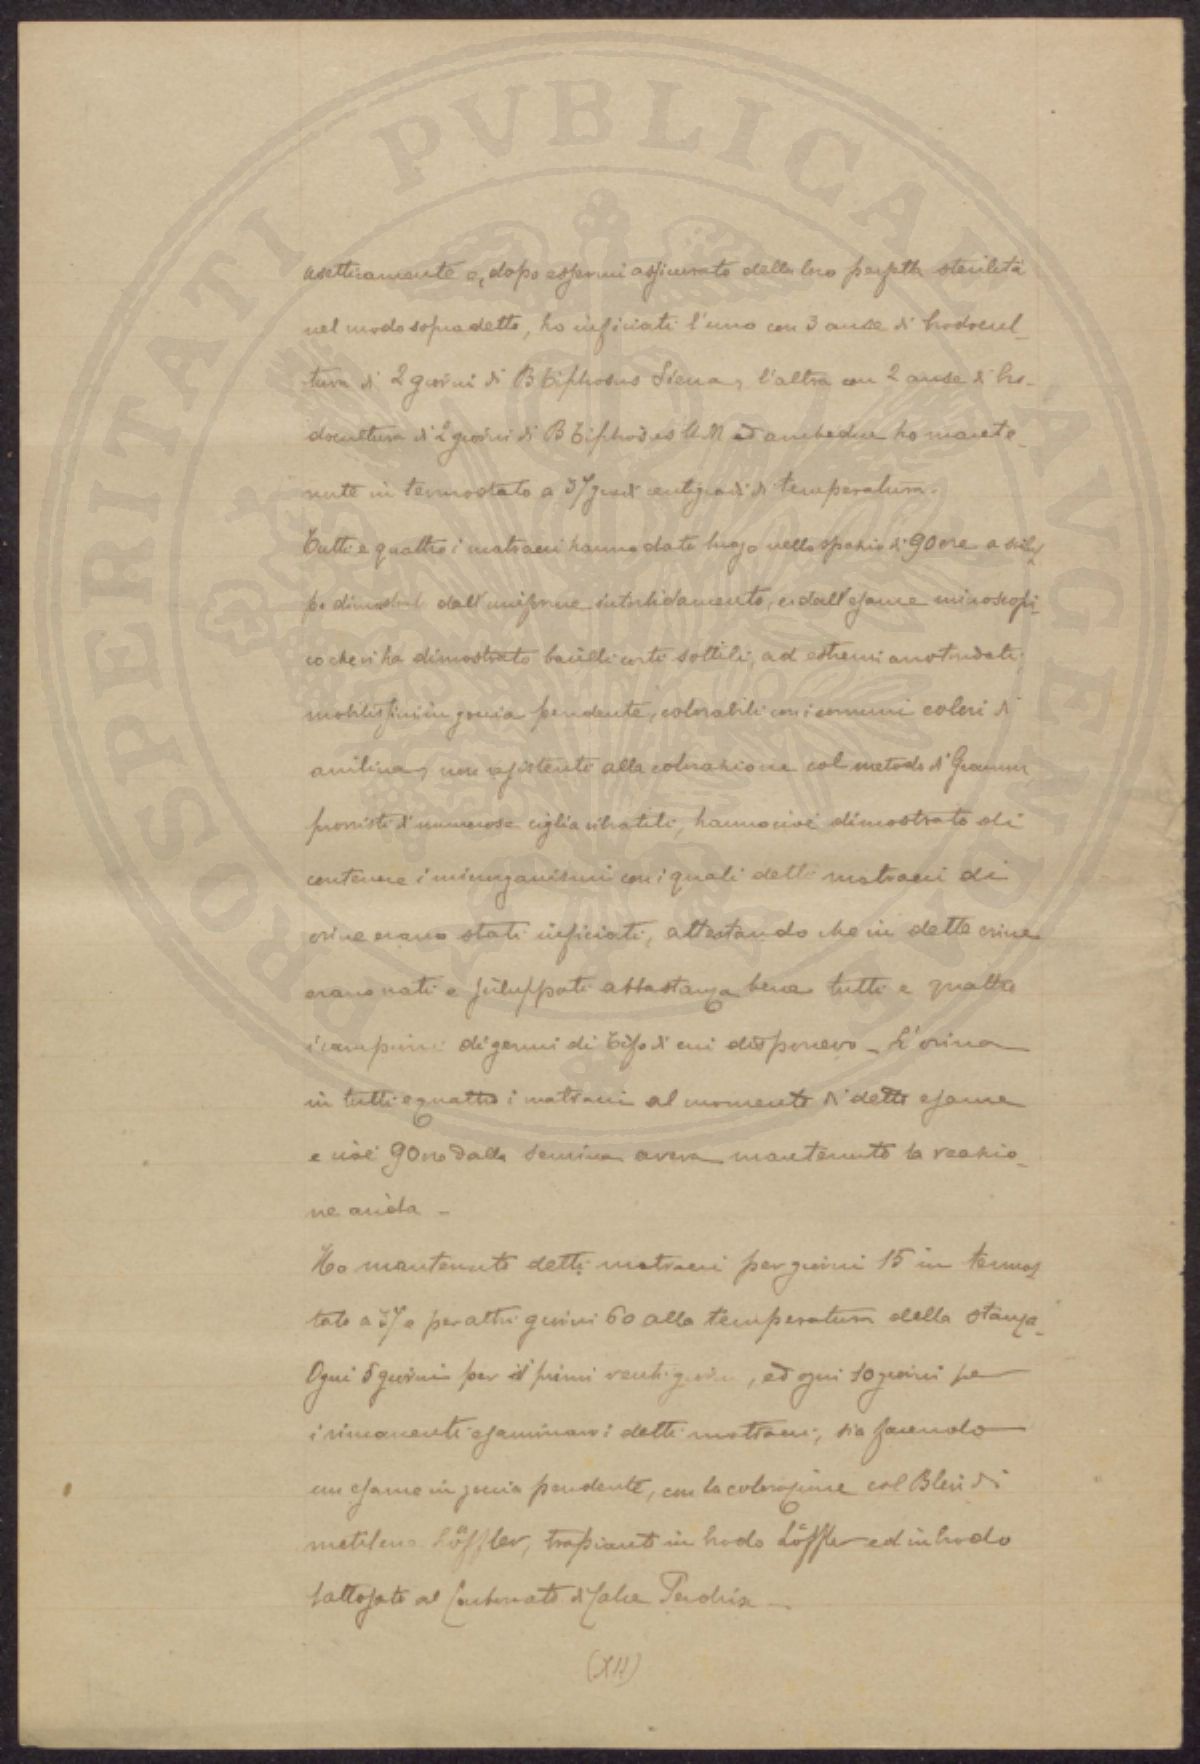 PROSPERITATI PVBLICAE AVGENDAE
asetticamente e, dopo essermi assicurato della loro perfetta sterilità
nel modo sopradetto, ho inficiati l'uno con 3 anse di brodocul-
tura di 2 giorni di B Tiphosus Siena, l'altra con 2 anse di bro-
docultura di 2 giorni di B Tiphosus UM ed ambedue ho mante-
nute in termostato a 37 gradi centigradi di temperatura.
Tutti e quattro i matracci hanno dato luogo nello spazio di 90 ore a svilup
po dimostrato dall'uniforme intorbidamento, e dall'esame miroscopi-
co che vi ha dimostrato bacilli corti sottili, ad estremi arrotondati,
mobilissimi in goccia pendente, colorabili con i comuni colori di
anilina, non resistenti alla colorazione col metodo di Gramm,
provvisti di numerose ciglia vibratili, hanno cioè dimostrato di
contenere i microrganismi con i quali detti matracci di
orine erano stati inficiati, attestando che in dette orine
erano nati e sviluppati abbastanza bene tutti e quattro
i campioni di germi di Tifo di cui disponevo – L'orina
in tutti e quattro i matracci al momento di detto esame
e cioè 90 ore dalla semina aveva mantenuto la reazio-
ne acida –
Ho mantenuto detti matracci per giorni 15 in termos
tato a 37 e per altri giorni 60 alla temperatura della stanza.
Ogni 5 giorni per i primi venti giorni, ed ogni 10 giorni per
i rimanenti esaminavo i detti matracci, sia facendo
un esame in goccia pendente, con la colorazione col Bleu di
metilene Löffler, trapianti in brodo Löffler ed in brodo
lattosato al Carbonato di Calce Perdrix –
(XII)